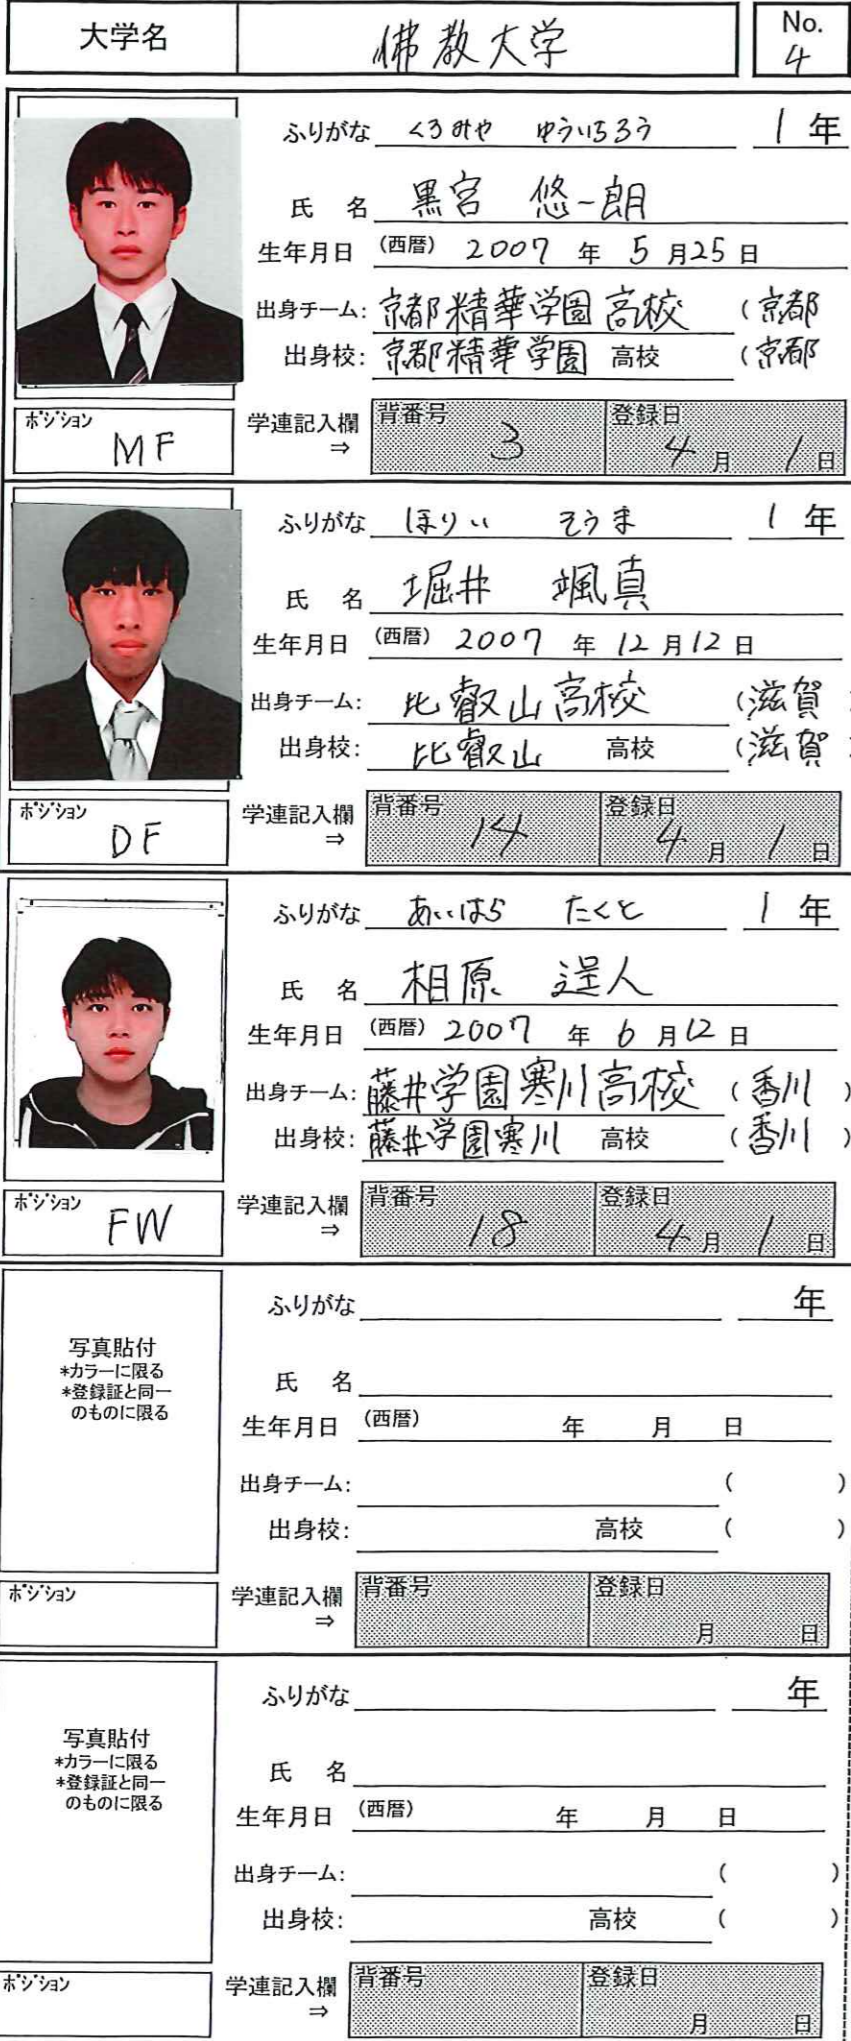 大学名 佛教大学 No. 4
ふりがな くろみや ゆういちろう 1年
氏名 黒宮 悠一朗
生年月日 (西暦) 2007年 5月25日
出身チーム: 京都精華学園高校 (京都
出身校: 京都精華学園 高校 (京都
ポジション MF 学連記入欄⇒ 背番号 3 登録日 4月 1日
ふりがな ほりい そうま 1年
氏名 堀井 颯真
生年月日 (西暦) 2007年 12月12日
出身チーム: 比叡山高校 (滋賀
出身校: 比叡山 高校 (滋賀
ポジション DF 学連記入欄⇒ 背番号 14 登録日 4月 1日
ふりがな あいはら たくと 1年
氏名 相原 逞人
生年月日 (西暦) 2007年 6月12日
出身チーム: 藤井学園寒川高校 (香川)
出身校: 藤井学園寒川 高校 (香川)
ポジション FW 学連記入欄⇒ 背番号 18 登録日 4月 1日
写真貼付
*カラーに限る
*登録証と同一
のものに限る
ふりがな 年
氏名
生年月日 (西暦) 年 月 日
出身チーム: ( )
出身校: 高校 ( )
ポジション 学連記入欄⇒ 背番号 登録日 月 日
写真貼付
*カラーに限る
*登録証と同一
のものに限る
ふりがな 年
氏名
生年月日 (西暦) 年 月 日
出身チーム: ( )
出身校: 高校 ( )
ポジション 学連記入欄⇒ 背番号 登録日 月 日